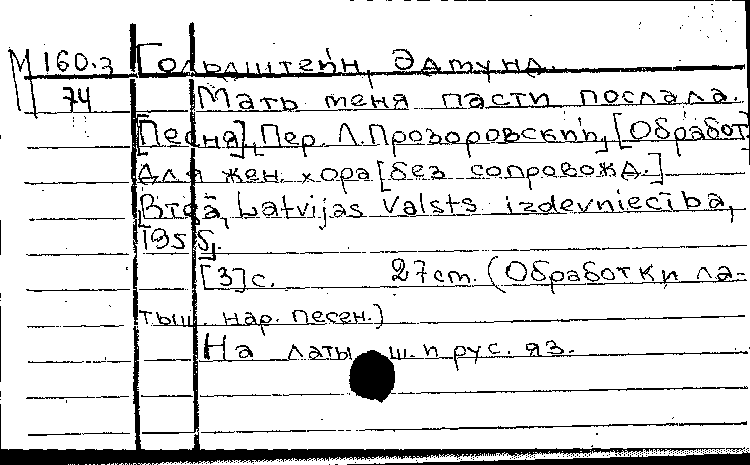 М 160.3 Гольдштейн, Эдмунд.
74 Мать меня пасти послала.
[Песня], Пер. Л. Прозоровский, [Обработ
для жен. хора [без сопровожд.]
Rīgā, Latvijas Valsts izdevniecība,
1958,
[3] с. 27 cm. (Обработки ла-
тыш. нар. песен.)
На латыш. и рус. яз.